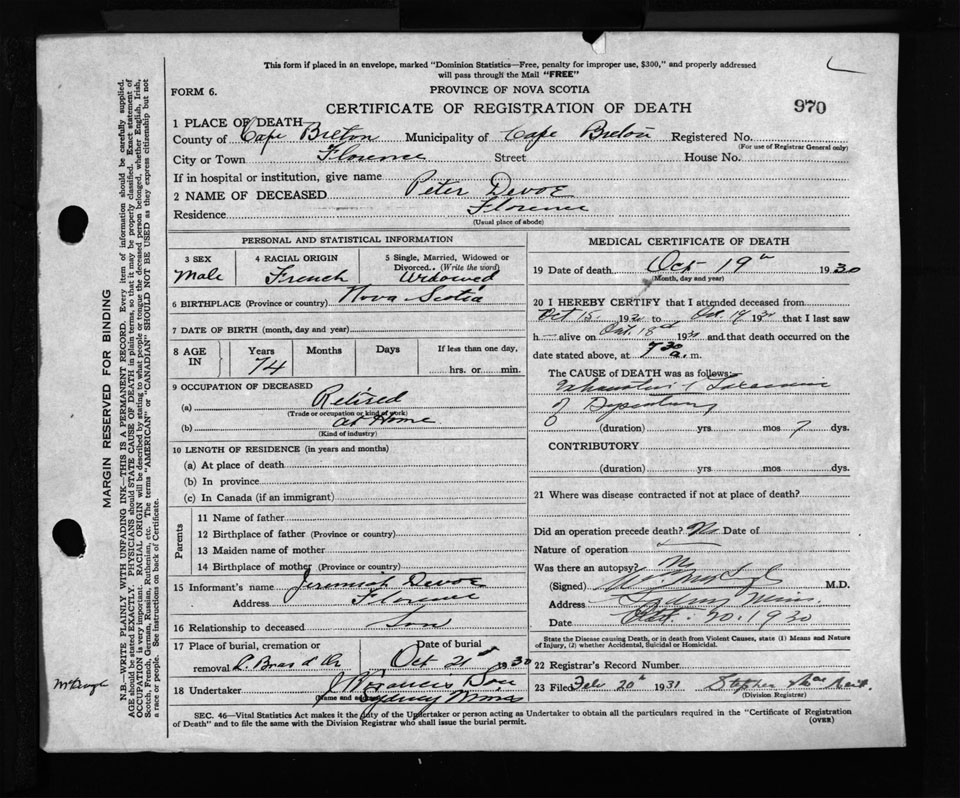 This form if placed in an envelope, marked "Dominion Statistics—Free, penalty for improper use, $300," and properly addressed
will pass through the Mail "FREE"
FORM 6.
PROVINCE OF NOVA SCOTIA
CERTIFICATE OF REGISTRATION OF DEATH
970
1 PLACE OF DEATH
County of Cape Breton Municipality of Cape Breton Registered No.
(For use of Registrar General only)
City or Town Florence Street House No.
If in hospital or institution, give name
2 NAME OF DECEASED Peter Devoe
Residence Florence
(Usual place of abode)
PERSONAL AND STATISTICAL INFORMATION
3 SEX 4 RACIAL ORIGIN 5 Single, Married, Widowed or
Divorced.. (Write the word)
Male French Widowed
6 BIRTHPLACE (Province or country) Nova Scotia
7 DATE OF BIRTH (month, day and year)
8 AGE IN Years Months Days If less than one day,
74 hrs. or min.
9 OCCUPATION OF DECEASED
(a) Retired
(Trade or occupation or kind of work)
(b) at Home
(Kind of industry)
10 LENGTH OF RESIDENCE (in years and months)
(a) At place of death
(b) In province
(c) In Canada (if an immigrant)
Parents
11 Name of father
12 Birthplace of father (Province or country)
13 Maiden name of mother
14 Birthplace of mother (Province or country)
15 Informant's name Jeremiah Devoe
Address Florence
16 Relationship to deceased Son
17 Place of burial, cremation or Date of burial
removal L. Bras d'Or Oct 21st 1930
18 Undertaker J Francis
(Name and address) Sydney Mines
MEDICAL CERTIFICATE OF DEATH
19 Date of death Oct 19th 1930
(Month, day and year)
20 I HEREBY CERTIFY that I attended deceased from
Oct 15 1930 to Oct 19 1930 that I last saw
h alive on Oct. 18th 1930 and that death occurred on the
date stated above, at 7 30 a. m.
The CAUSE of DEATH was as follows:
of Dysentery
(duration) yrs mos 7 dys.
CONTRIBUTORY
(duration) yrs mos dys.
21 Where was disease contracted if not at place of death?
Did an operation precede death? No Date of
Nature of operation
Was there an autopsy? No
(Signed) M.D.
Address Sydney Mines
Date Oct. 20. 1930
State the Disease causing Death, or in death from Violent Causes, state (1) Means and Nature
of Injury, (2) whether Accidental, Suicidal or Homicidal.
22 Registrar's Record Number
23 Filed Feb 20th 1931 Stephen
(Division Registrar)
SEC. 46—Vital Statistics Act makes it the duty of the Undertaker or person acting as Undertaker to obtain all the particulars required in the "Certificate of Registration
of Death" and to file the same with the Division Registrar who shall issue the burial permit.
(OVER)
MARGIN RESERVED FOR BINDING
N.B.—WRITE PLAINLY WITH UNFADING INK—THIS IS A PERMANENT RECORD. Every item of information should be carefully supplied.
AGE should be stated EXACTLY. PHYSICIANS should STATE CAUSE OF DEATH in plain terms, so that it may be properly classified. Exact statement of
OCCUPATION is very important. RACIAL ORIGIN will be described by stating to what people or tongue the deceased person belonged, whether English, Irish,
Scotch, French, German, Russian, Ruthenian, etc. The terms "AMERICAN" or "CANADIAN" SHOULD NOT BE USED as they express citizenship but not
a race or people. See instructions on back of Certificate.